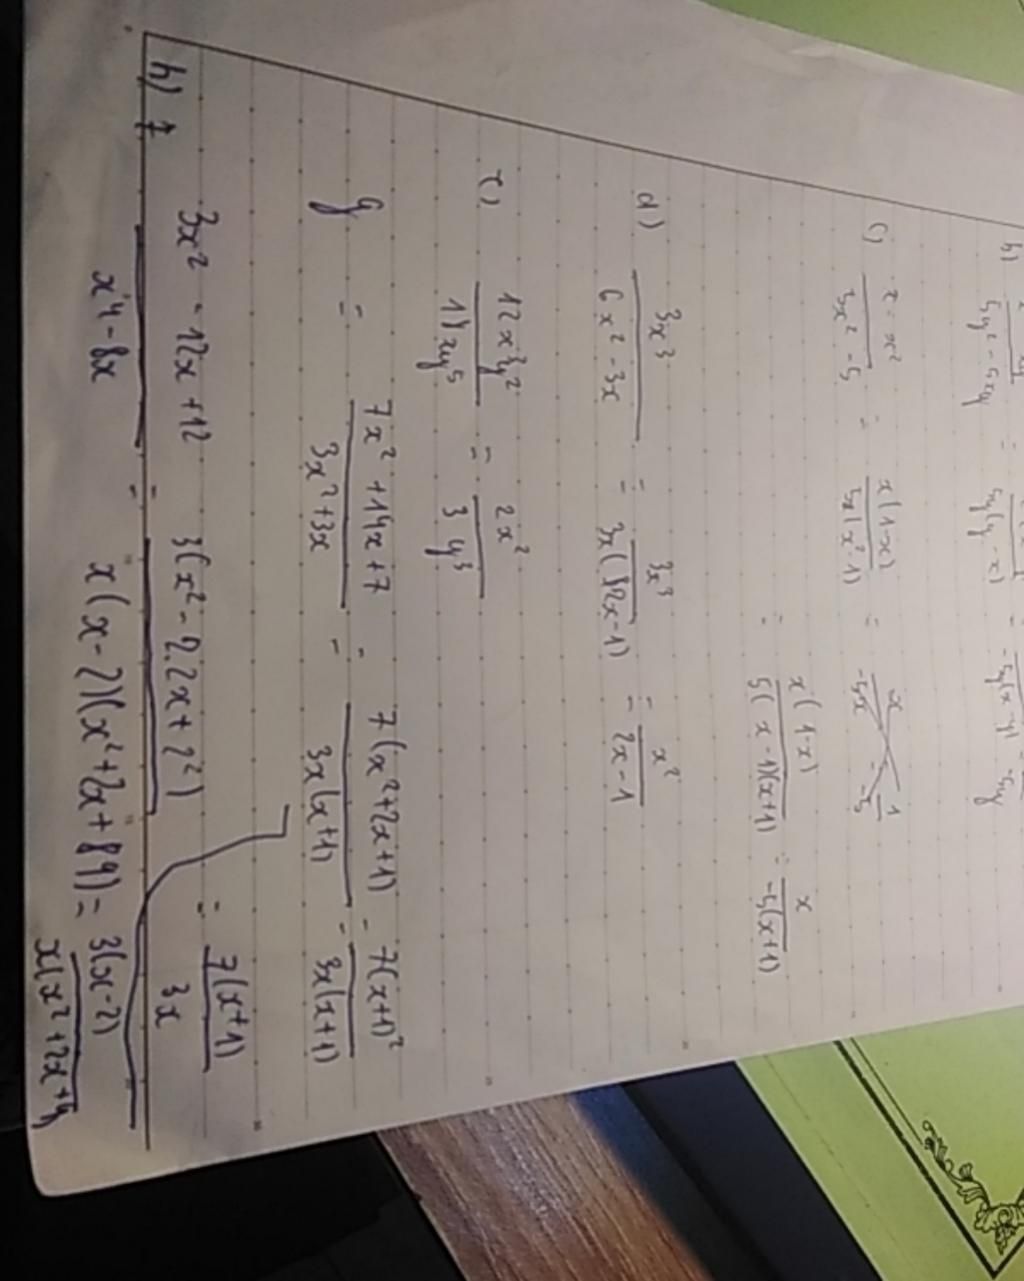 h)
5y² - 5xy = 5y(y - x) = -5y(x - y) = -5y
c) x - x² / 5x² - 5 = x(1-x) / 5x(x² 1) =
= x(1-x) / 5(x-1)(x+1) = x / -5(x+1)
d) 3x³ / 6x² - 3x = 3x³ / 3x(2x-1) = x² / 2x-1
12x³y² / 18xy⁵ = 2x² / 3y³
g = 7x² + 14x + 7 / 3x² + 3x = 7(x² + 2x + 1) / 3x(x+1) = 7(x+1)² / 3x(x+1)
= 7(x+1) / 3x
h) 3x² - 12x + 12 / x⁴ - 8x = 3(x² - 2.2x + 2²) / x(x-2)(x² + 2x + 4) = 3(x-2) / x(x² + 2x + 4)